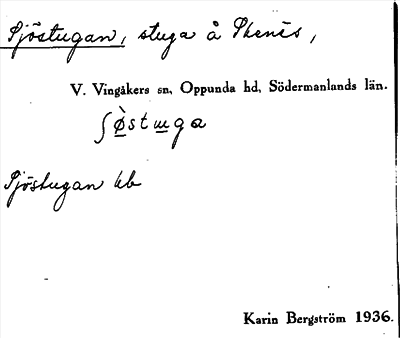 Sjöstugan, stuga å Skenäs,
V. Vingåkers sn, Oppunda hd, Södermanlands län.
ʃø̀stuga
Sjöstugan kb
Karin Bergström 1936.